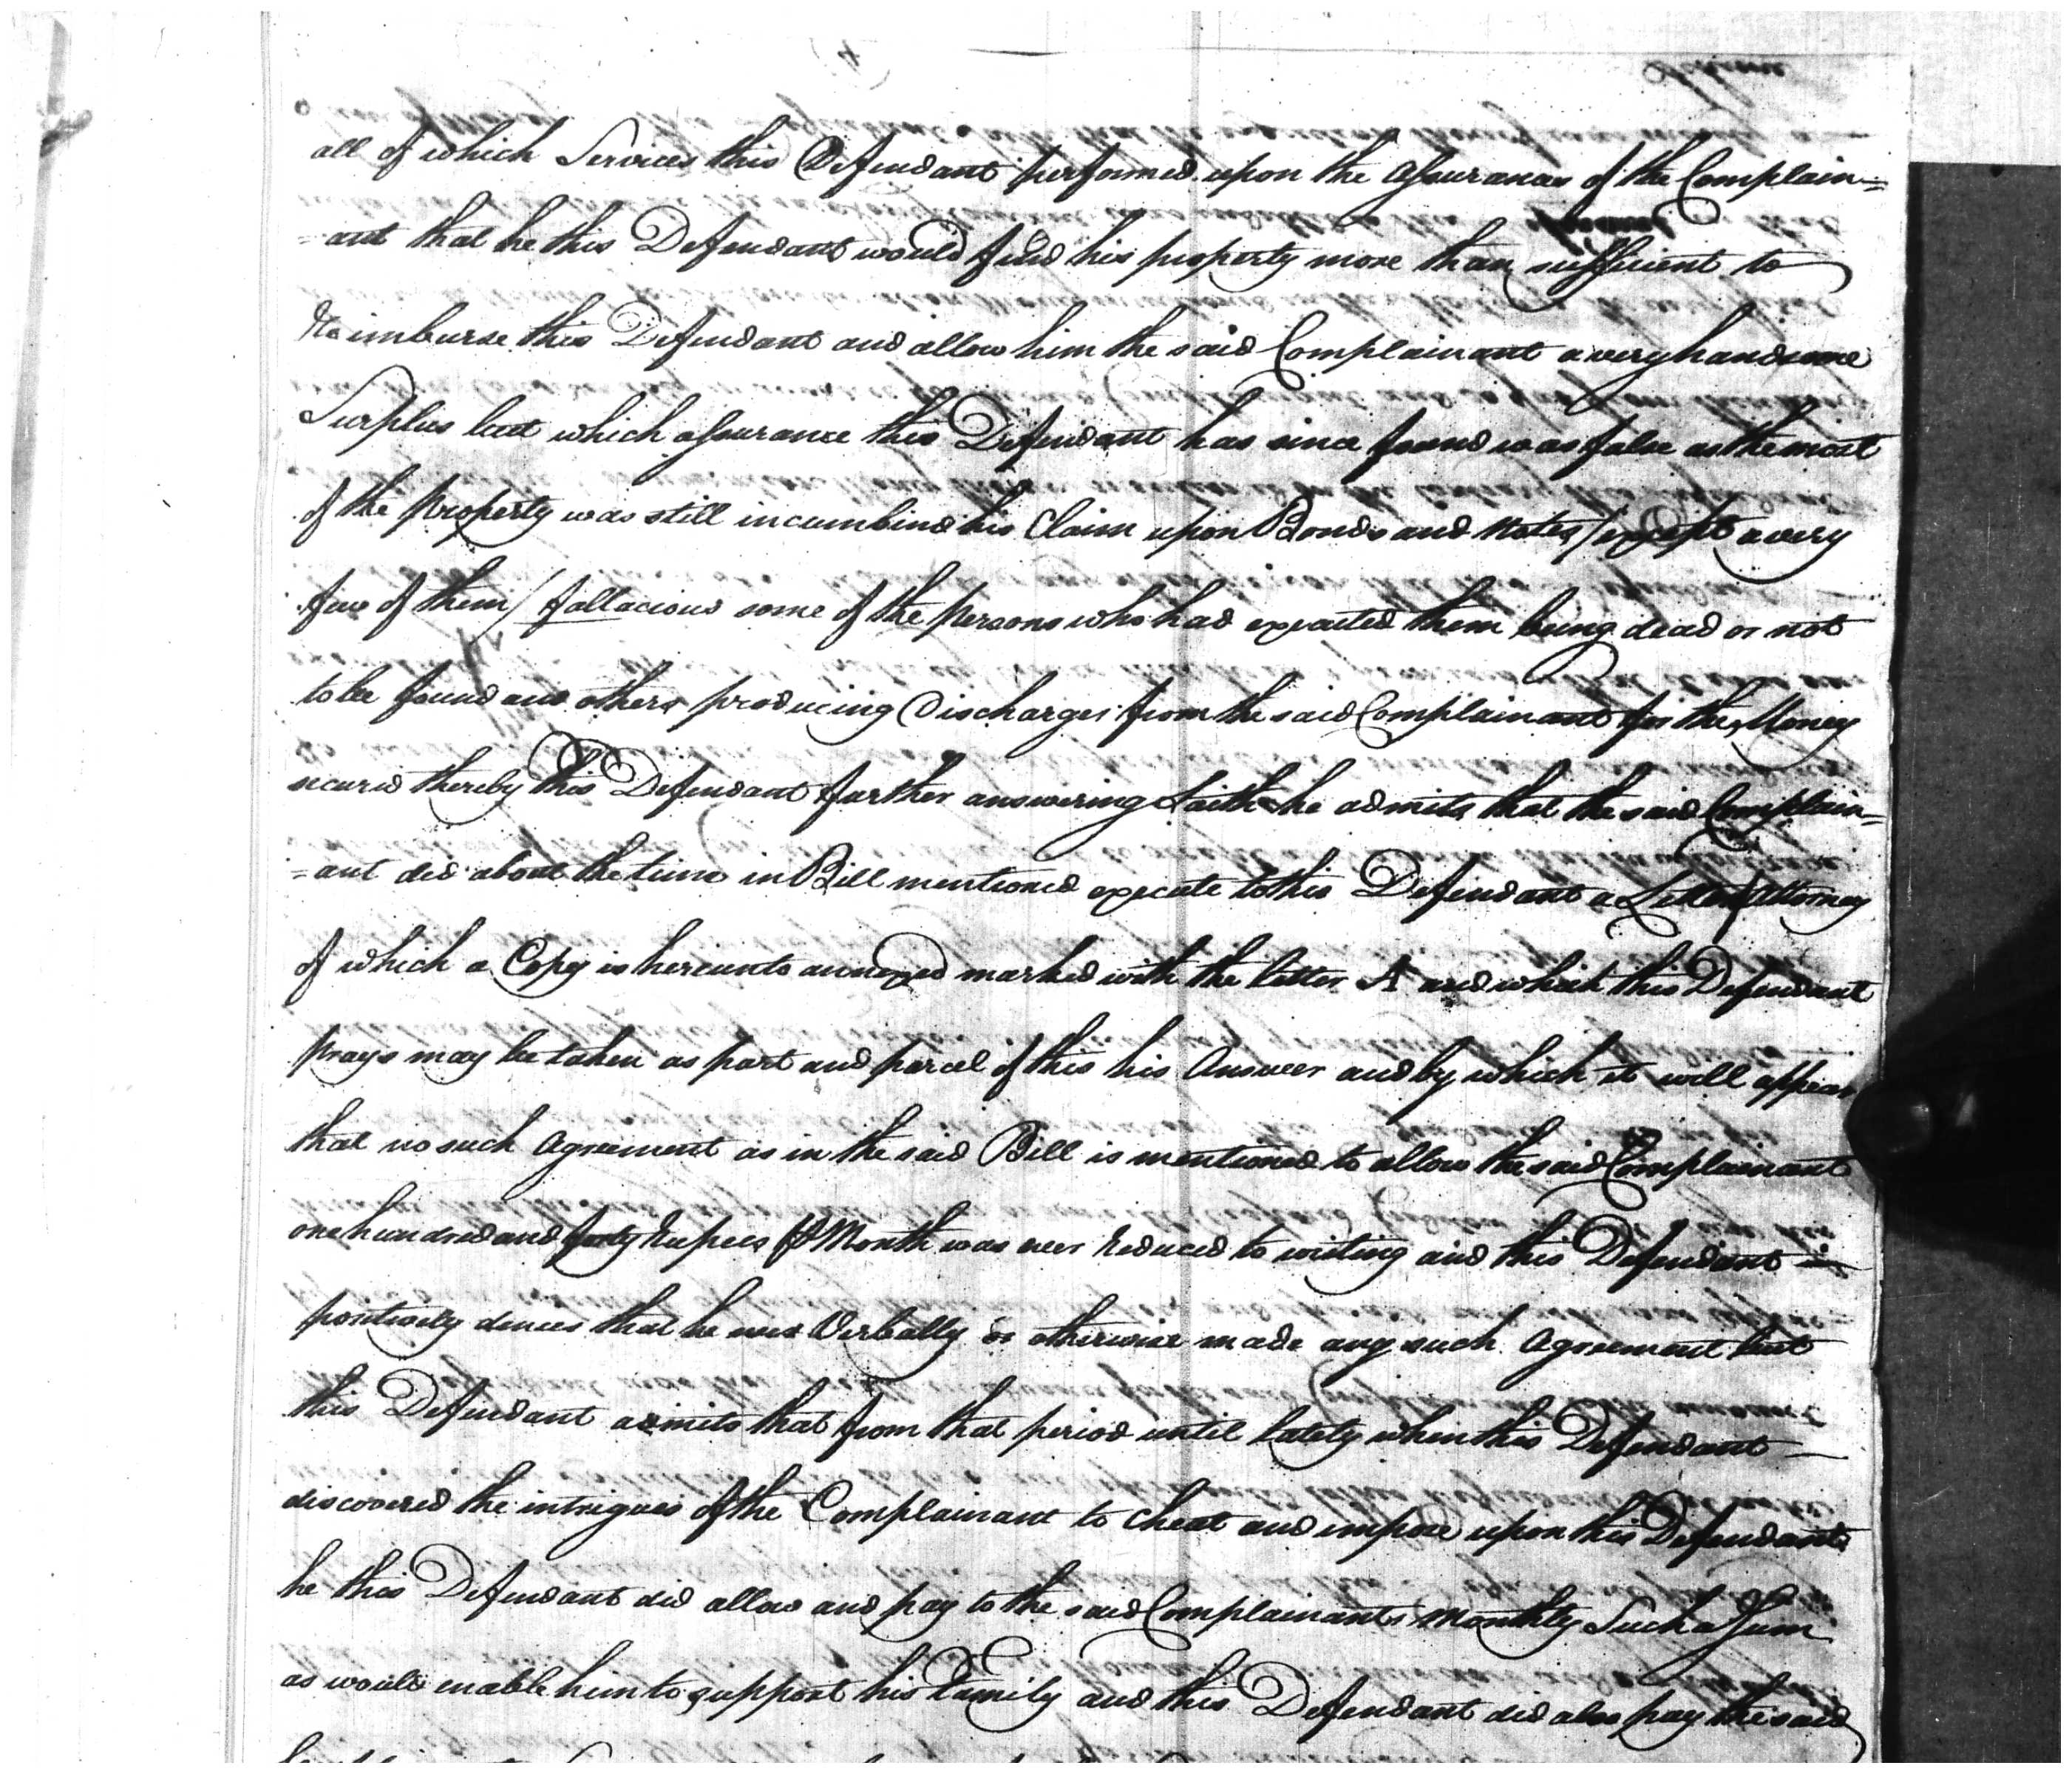 all of which Services this Defendant performed upon the assurances of the Complain=
=ant that he this Defendant would find his property more than sufficient to
Reimburse this Defendant and allow him the said Complainant a very handsome
Surplus but which assurance this Defendant has since found was false as the most
of the property was still incumbind his Claim upon Bonds and Notes /except a very
few of them/ fallacious some of the persons who had executed them being dead or not
to be found and others producing Discharges from the said Complainant for the Money
secured thereby this Defendant further answering Saith he admits that the said Complain=
=ant did about the time in Bill mentioned execute to this Defendant a Letter of Attorney
of which a Copy is hereunto annexed marked with the letter A and which this Defendant
prays may be taken as part and parcel of this his Answer and by which it will appear
that no such Agreement as in the said Bill is mentioned to allow the said Complainant
one hundred and forty Rupees P Month was ever Reduced to writing and this Defendant
positively denies that he ever Verbally or otherwise made any such Agreement but
this Defendant admits that from that period until lately when this Defendant
discovered the intrigues of the Complainant to cheat and impose upon this Defendant
he this Defendant did allow and pay to the said Complainants Monthly Such a Sum
as would enable him to support his Family and this Defendant did also pay the said